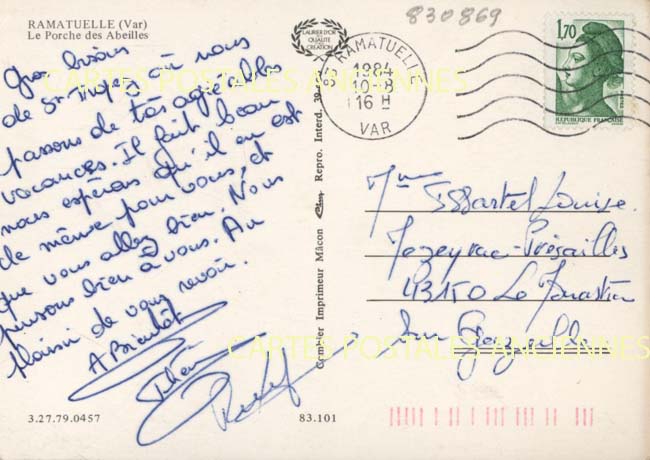 RAMATUELLE (Var)
Le Porche des Abeilles
Gros bisous
de St Tropez où nous
passons de très agréables
vacances. Il fait beau
nous espérons qu'il en est
de même pour vous, et
que vous allez bien. Nous
pensons bien à vous. Au
plaisir de vous revoir.
A Bientôt
3.27.79.0457
83.101
LAURIER D'OR
DE QUALITÉ
DE CRÉATION
Combier Imprimeur Mâcon
Repro. Interd.
830869
RAMATUELLE
1984
10-8
16 H
VAR
1,70
REPUBLIQUE FRANÇAISE
Mme Martel Louise
Présailles
43150 Le Monastier
sur Gazeille
CARTES POSTALES ANCIENNES
CARTES POSTALES ANCIENNES